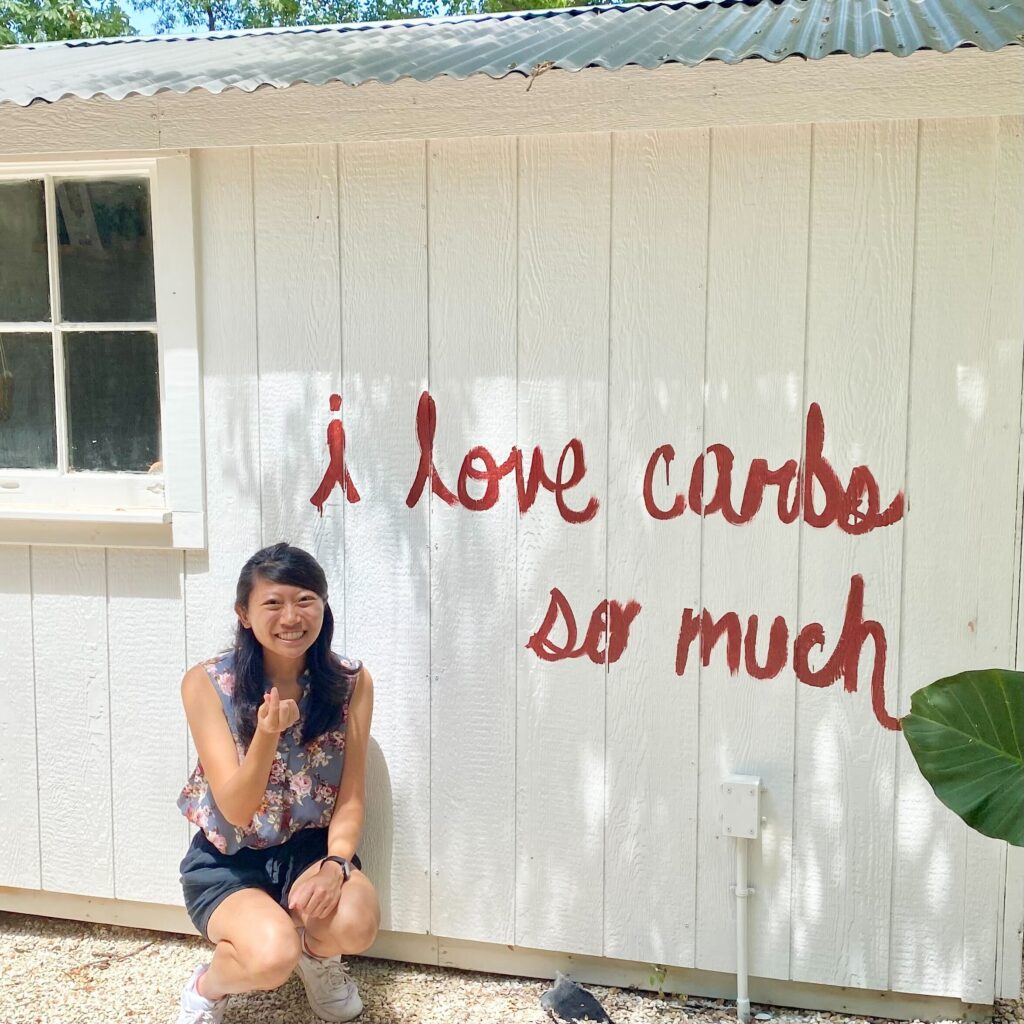 i love carbs
so much